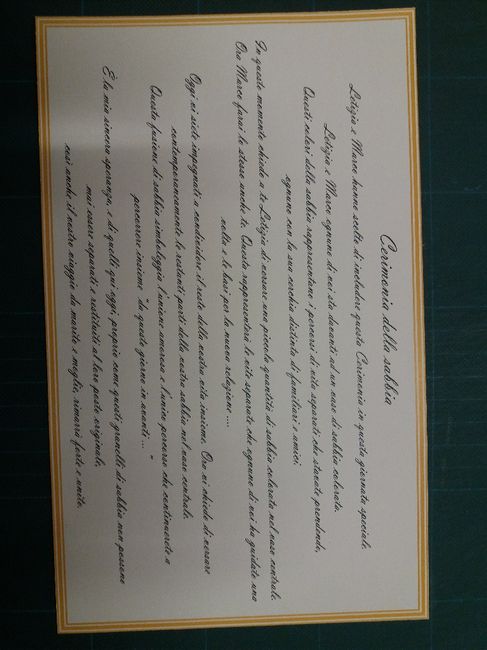 Cerimonia della sabbia
Letizia e Marco hanno scelto di includere questa Cerimonia in questa giornata speciale.
Letizia e Marco, ognuno di voi sta davanti ad un vaso di sabbia colorata.
Questi colori della sabbia rappresentano i percorsi di vita separati che stavate prendendo,
ognuno con la sua cerchia distinta di familiari e amici.
In questo momento chiedo a te Letizia di versare una piccola quantità di sabbia colorata nel vaso centrale.
Ora Marco farai lo stesso anche tu. Questa rappresenterà le vite separate che ognuno di voi ha guidato una
volta e le basi per la nuova relazione ....
Oggi vi siete impegnati a condividere il resto della vostra vita insieme. Ora vi chiedo di versare
contemporaneamente le restanti parti della vostra sabbia nel vaso centrale.
Questa fusione di sabbia simboleggia l'unione amorosa e l'unico percorso che continuerete a
percorrere insieme "da questo giorno in avanti ... "
È la mia sincera speranza, e di quelli qui oggi, proprio come questi granelli di sabbia non possono
mai essere separati e restituiti al loro posto originale,
così anche il vostro viaggio da marito e moglie, rimarrà forte e unito.